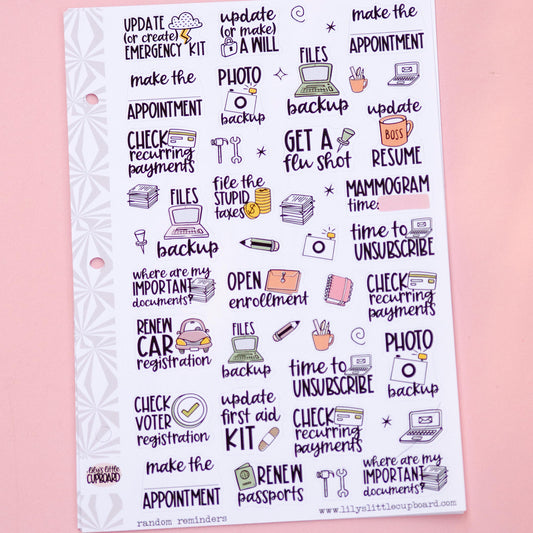 UPDATE
(or create)
EMERGENCY KIT
update
(or make)
A WILL
make the
APPOINTMENT
make the
APPOINTMENT
PHOTO
backup
FILES
backup
update
BOSS
RESUME
CHECK
recurring
payments
GET A
flu shot
FILES
backup
file the
STUPID
taxes
MAMMOGRAM
time:
time to
UNSUBSCRIBE
where are my
IMPORTANT
documents?
OPEN
enrollment
CHECK
recurring
payments
RENEW
CAR
registration
FILES
backup
time to
UNSUBSCRIBE
PHOTO
backup
CHECK
VOTER
registration
update
first aid
KIT
CHECK
recurring
payments
make the
APPOINTMENT
RENEW
passports
where are my
IMPORTANT
documents?
lily's little
CUPBOARD
random reminders
www.lilyslittlecupboard.com